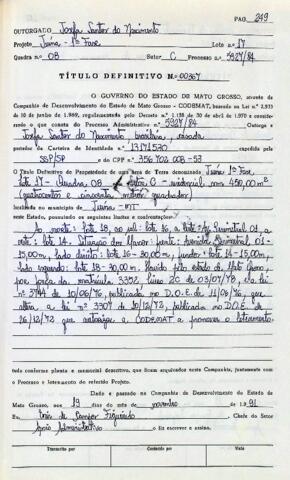 PAG. 249
OUTORGADO Josefa Santos do Nascimento
Projeto Jaína - 1ª Fase Lote nº 17
Quadra nº 08 Setor C Processo nº 5927/84
TÍTULO DEFINITIVO N.º 00367
O GOVERNO DO ESTADO DE MATO GROSSO, através da
Companhia de Desenvolvimento do Estado de Mato Grosso - CODEMAT, baseado na Lei n.º 2.933
10 de junho de 1969, regulamentada pelo Decreto n.º 1.138 de 30 de abril de 1970 e considerando
o que consta do Processo Administrativo n.º 5927/84 Outorga a
Josefa Santos do Nascimento brasileira, casada
portador da Carteira de Identidade N.º 13171530 expedida pela
SSP/SP e do CPF n.º 356 702 008-53
O Título Definitivo de Propriedade de uma área de Terra denominada Jaína 1ª Fase
lote 17 - Quadra 08 setor C - residencial com 450,00 m²
(quatrocentos e cinquenta metros quadrados)
localizada no município de Jaína - MT
neste Estado, possuindo os seguintes limites e confrontações:
Ao norte: lote 18, ao sul: lote 16, a leste: Av. Perimetral 01, a
oeste: lote 14. Situação dos lados: frente: avenida Perimetral 01 -
15,00m, lado direito: lote 16 - 30,00m, fundos: lote 14 - 15,00m,
lado esquerdo: lote 18 - 30,00m. Havido pelo estado de Mato Grosso,
por força da matrícula 3352, livro 2C de 03/07/78, da lei
nº 3744 de 10/06/76, publicada no D.O.E. de 11/06/76, que
altera a lei nº 3307 de 18/12/72, publicada no D.O.E. de
26/12/72 que autoriza a CODEMAT a promover o loteamento.
tudo conforme planta e memorial descritivo, que foram arquivados nesta Companhia, juntamente com
o Processo e loteamento do referido Projeto.
Dado e passado na Companhia de Desenvolvimento do Estado de
Mato Grosso, aos 19 dias do mês de novembro de 1991
Eu, Inês de Campos Figueiredo Chefe do Setor
Apoio Administrativo o fiz escrever e assino.
Transcrito por Conferido por Visto